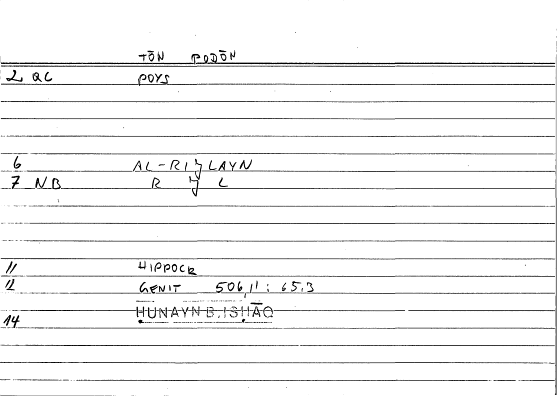 TŌN PODŌN
2 QC POYS
6 AL-RIǦLAYN
7 NB R Ǧ L
11 HIPPOCR
12 GENIT 506,11 : 65.3
14 ḤUNAYN B. ISḤĀQ